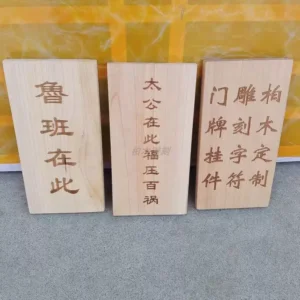 魯班在此
太公在此福压百祸
柏木定制
雕刻字符
门牌挂件